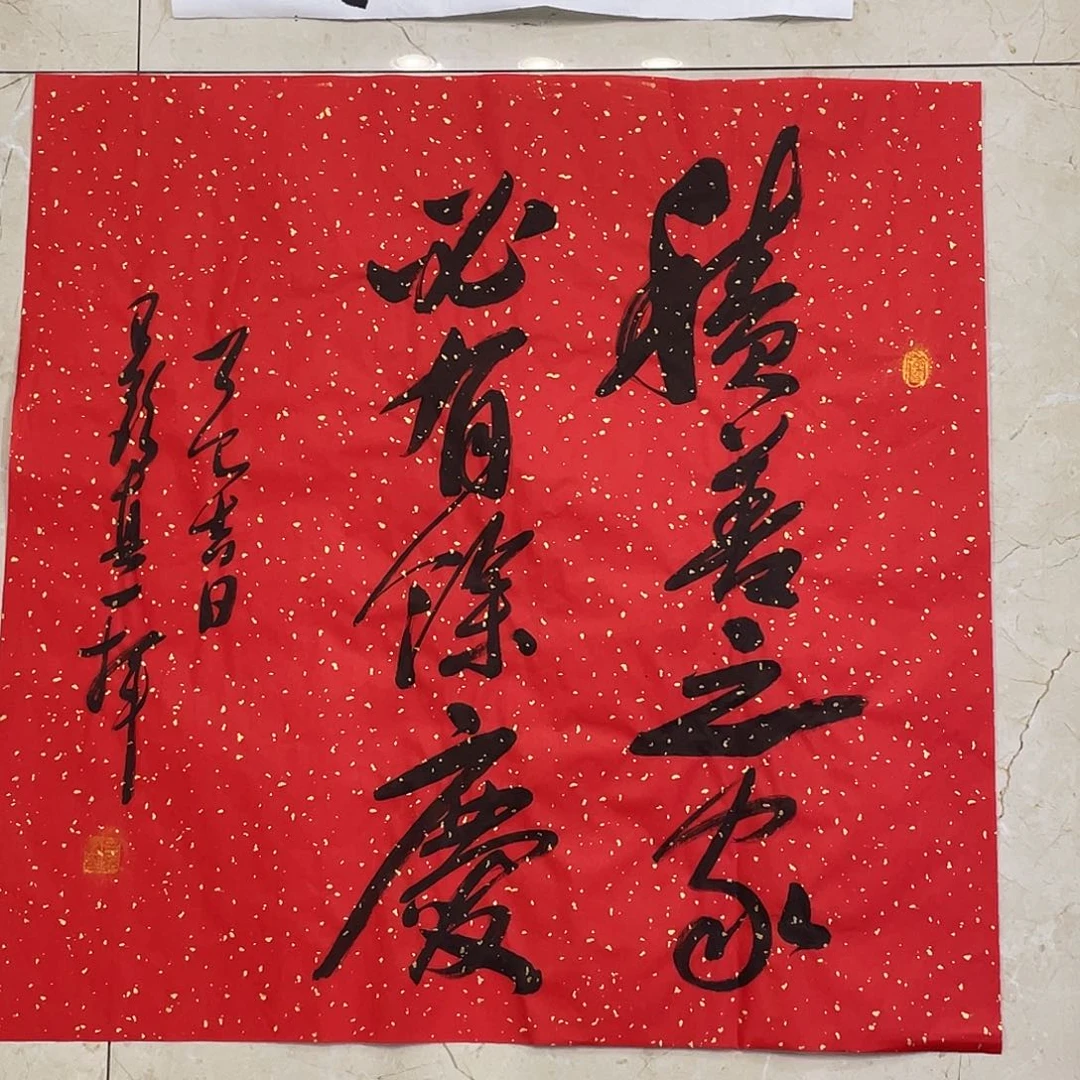 積善之家
必有餘慶
乙巳吉日
一揮